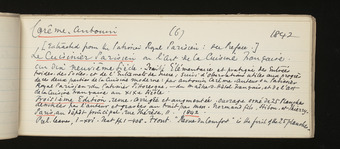 Carême. Antonin (6) 1842
Le Cuisinier Parisien ou l'art de la Cuisine française
au dix neuvième siècle. Traité Élémentaire et pratique des entrées
froides, des socles, et de l'entremets de sucre, suivi d'observations utiles aux progrès
de ces deux parties de la Cuisine moderne: par Antonin Carême auteur du Pâtissier
Royal Parisien, du Pâtissier Pittoresque, du Maître Hôtel français, et de l'art
de la Cuisine française au XIXe Siècle.
Troisième Edition, revue, corrigée et augmentée. ouvrage orné de 25 planches
dessinées par l'auteur et gravées au trait par MM. Normand fils, Hibon, et Thierry.
Paris au dépôt principal, rue Thérèse, 1842